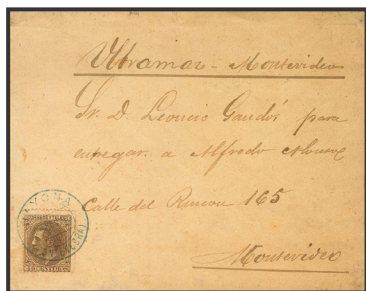 Ultramar - Montevideo
Sr. D. Leoncio Gaudós para
entregar a Alfredo
Calle del Rincon 165
YONA
Montevideo